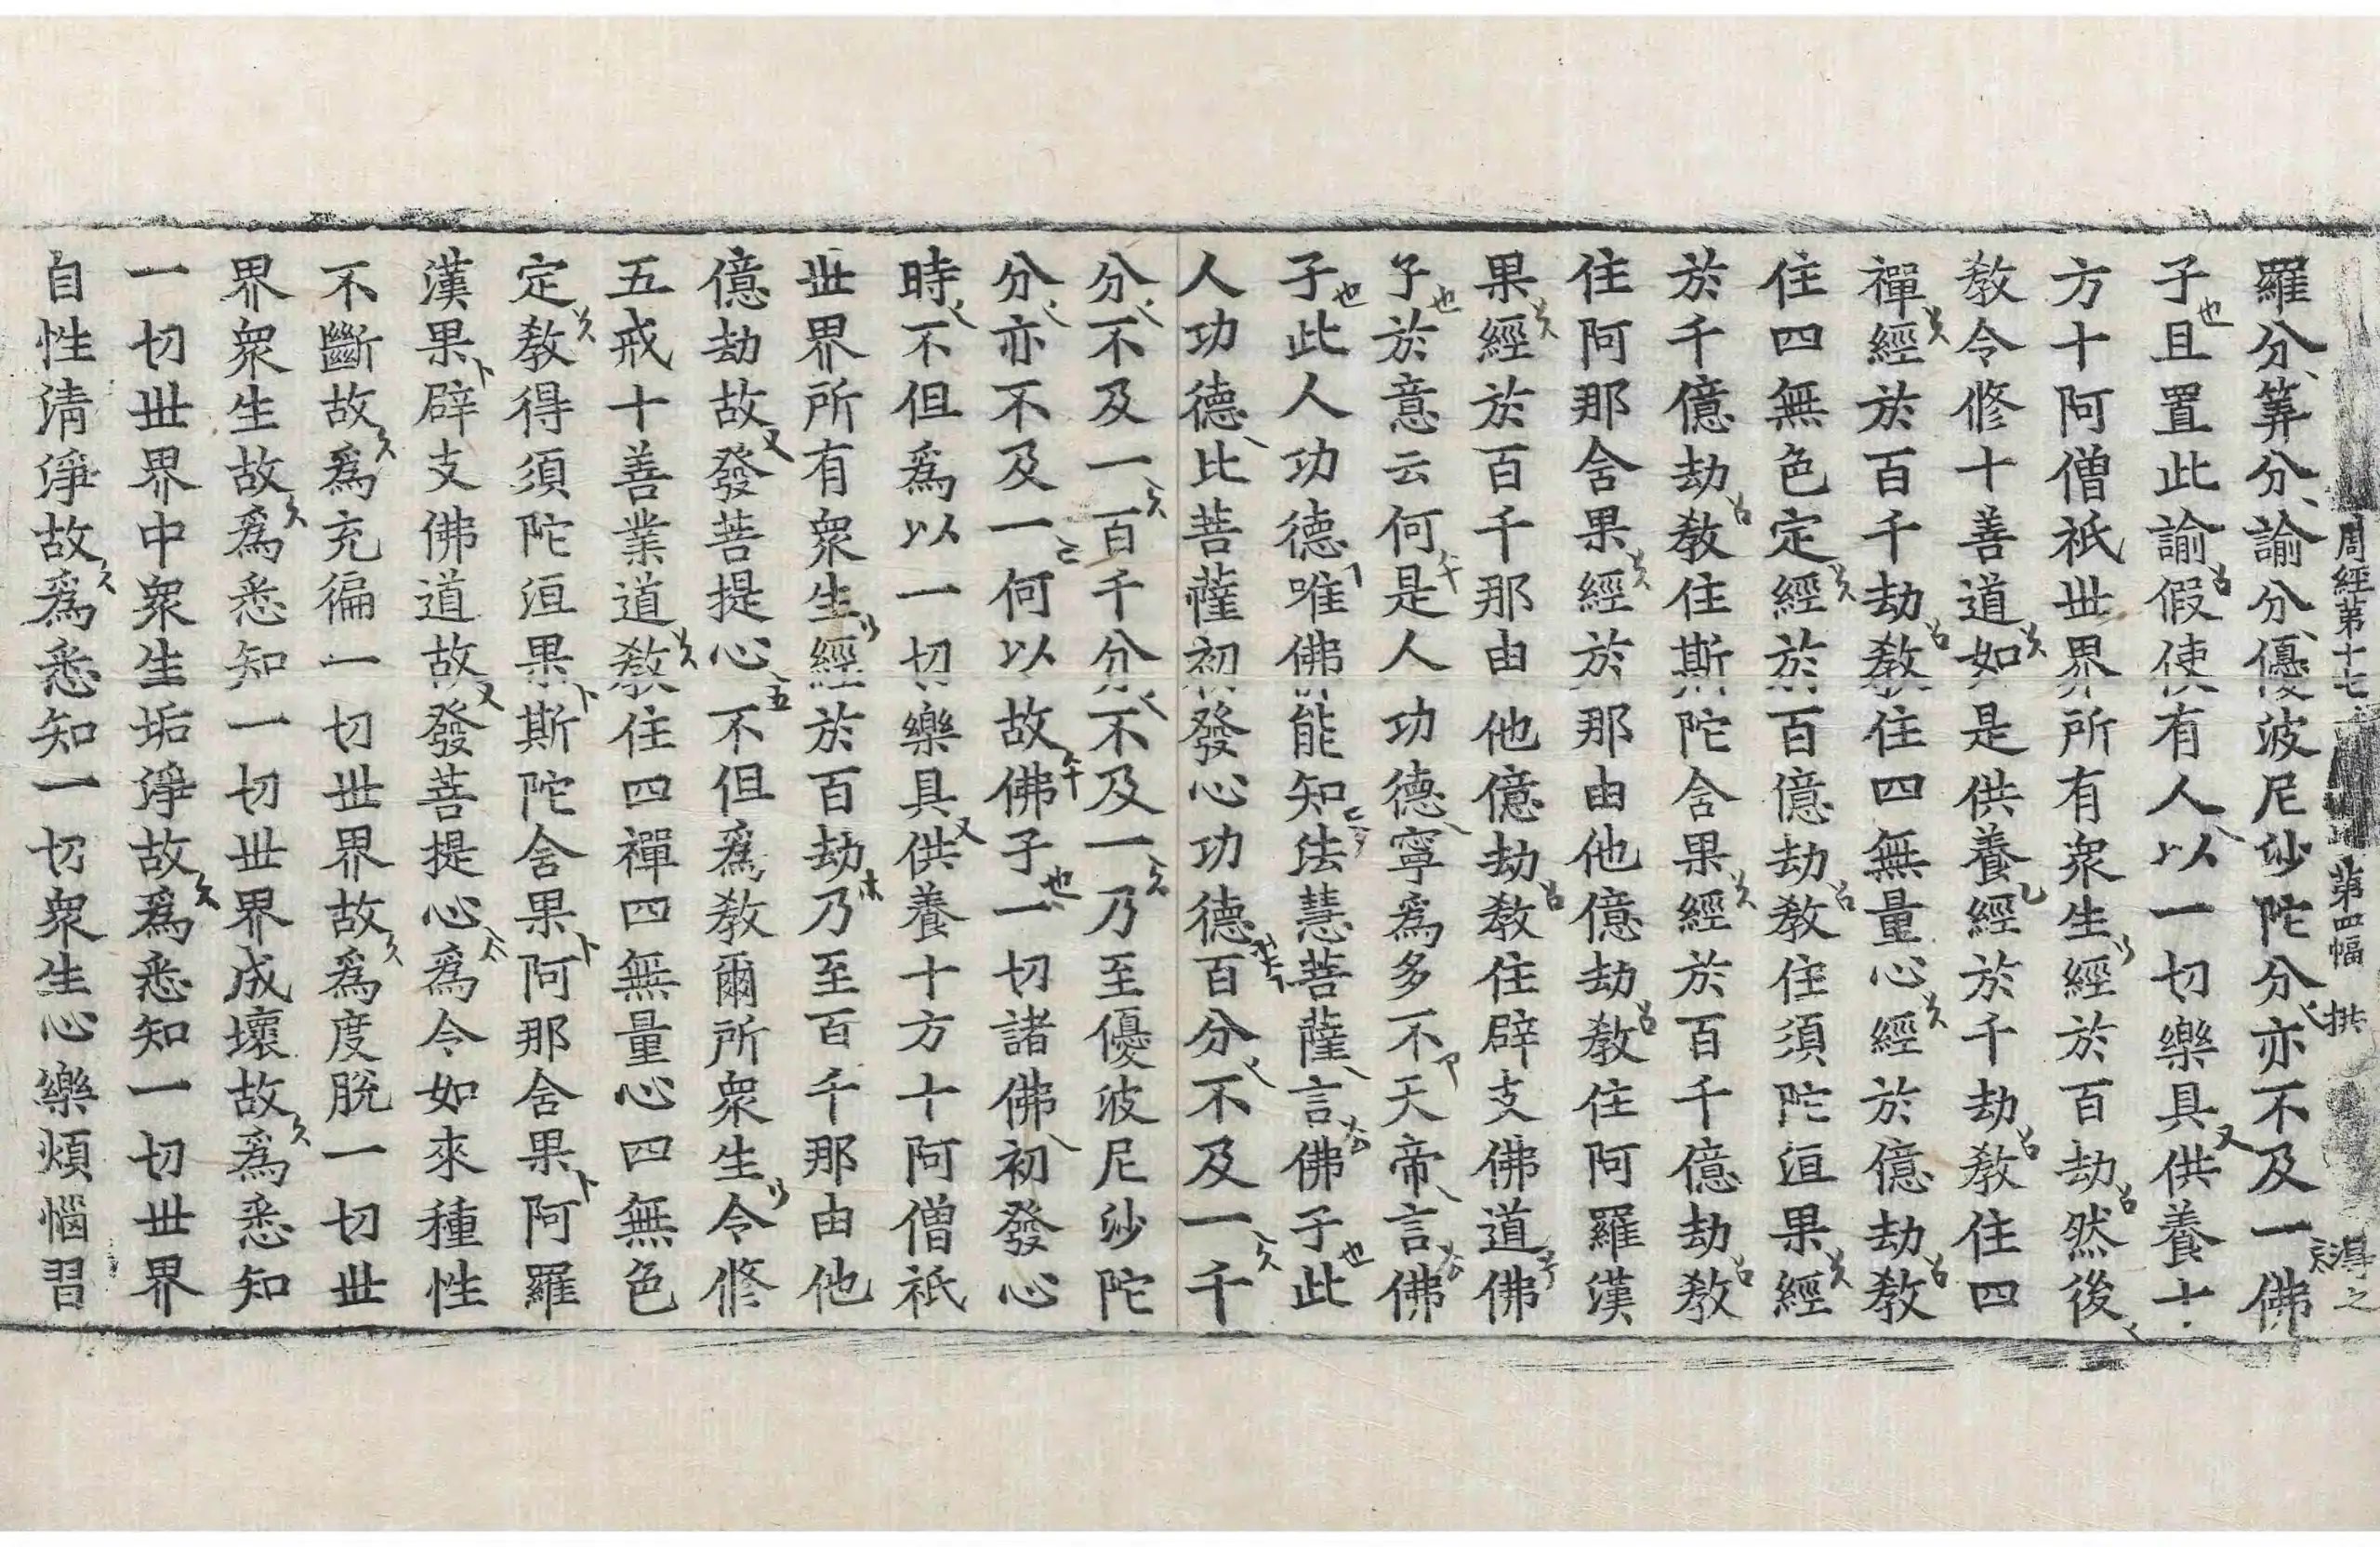 周經第十七 第四幅 拱 得之
羅分筭分諭分優波尼沙陀分亦不及一佛
子且置此諭假使有人以一切樂具供養十
方十阿僧祇世界所有衆生經於百劫然後
教令修十善道如是供養經於千劫教住四
禪經於百千劫教住四無量心經於億劫教
住四無色定經於百億劫教住須陀洹果經
於千億劫教住斯陀含果經於百千億劫教
住阿那含果經於那由他億劫教住阿羅漢
果經於百千那由他億劫教住辟支佛道佛
子於意云何是人功德寧為多不天帝言佛
子此人功德唯佛能知法慧菩薩言佛子此
人功德比菩薩初發心功德百分不及一千
分不及一百千分不及一乃至優波尼沙陀
分亦不及一何以故佛子一切諸佛初發心
時不但為以一切樂具供養十方十阿僧祇
世界所有衆生經於百劫乃至百千那由他
億劫故發菩提心不但為教爾所衆生令修
五戒十善業道教住四禪四無量心四無色
定教得須陀洹果斯陀含果阿那含果阿羅
漢果辟支佛道故發菩提心為令如來種性
不斷故為充徧一切世界故為度脫一切世
界衆生故為悉知一切世界成壞故為悉知
一切世界中衆生垢淨故為悉知一切世界
自性清淨故為悉知一切衆生心樂煩惱習